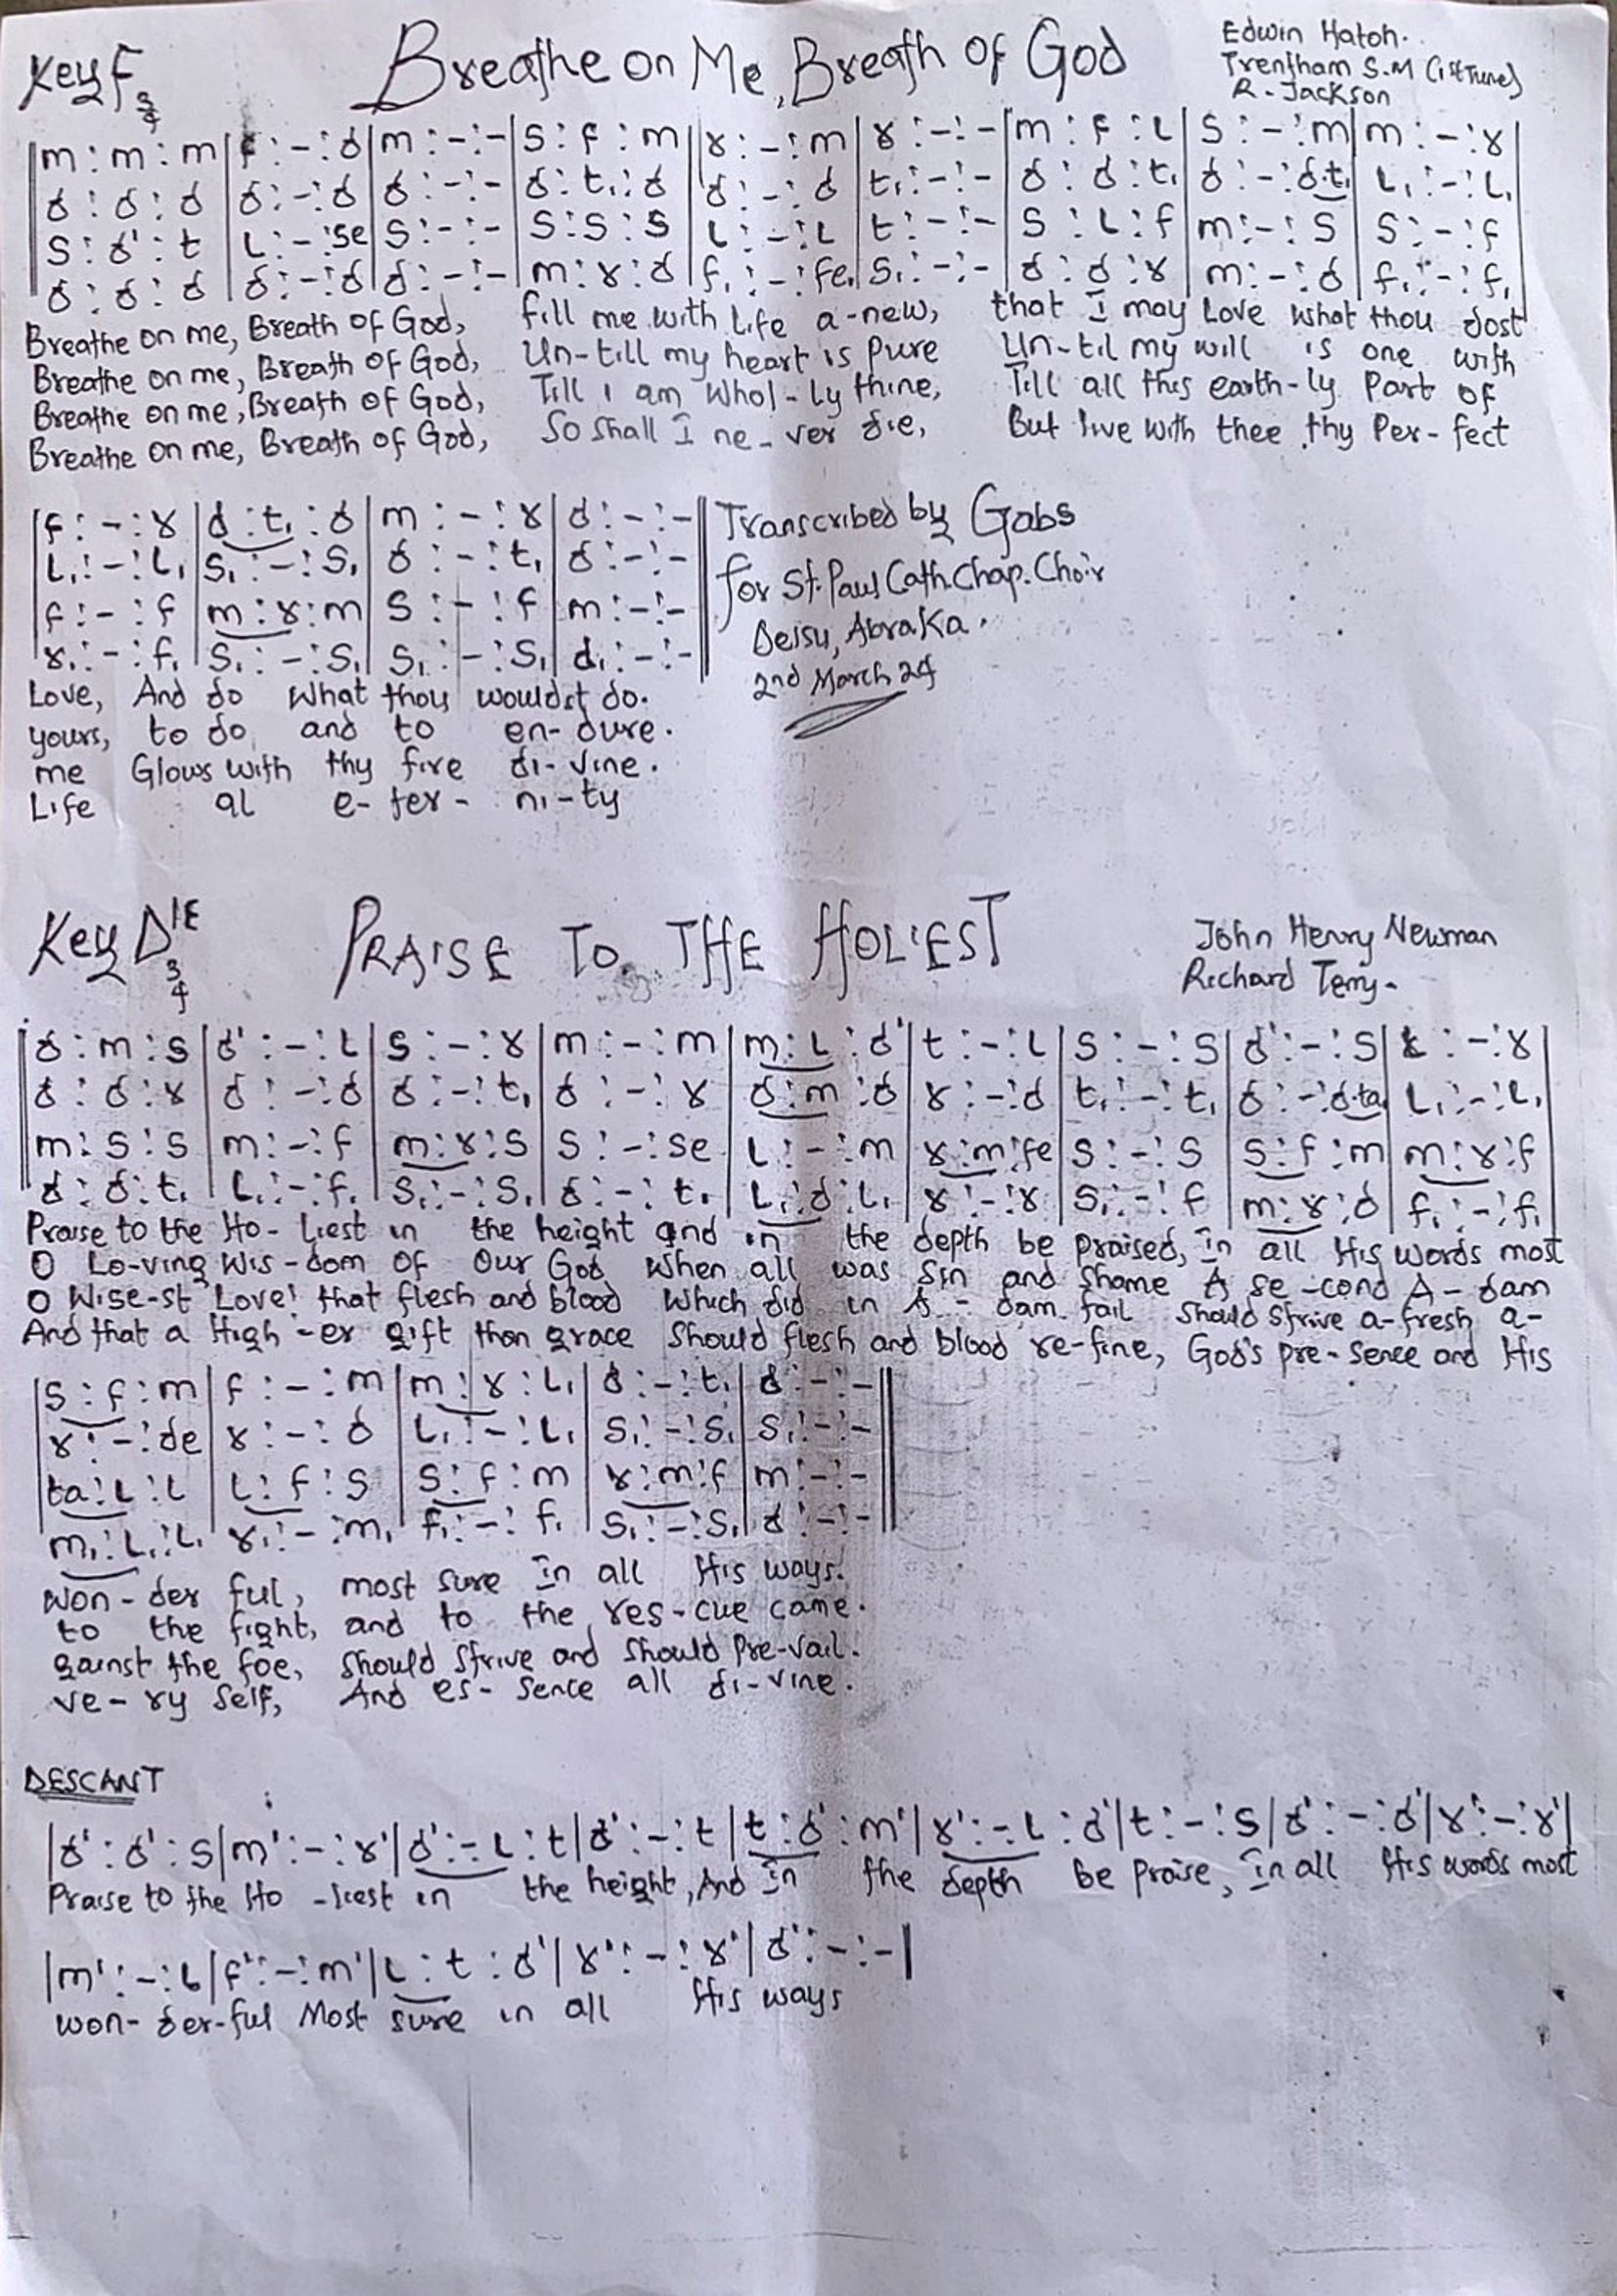 Key F 3/4
Breathe on Me, Breath of God
Edwin Hatch.
Trentham S.M (1st Tune)
R. Jackson
||m : m : m |f : – : d |m : – : – |s : f : m |r : – : m |r : – : – |m : f : l |s : – : m |m : – : r |
||d : d : d |d : – : d |d : – : – |d : t₁ : d |d : – : d |t₁ : – : – |d : d : t₁ |d : – : d.t₁ |l₁ : – : l₁ |
||s : d' : t |l : – : se |s : – : – |s : s : s |l : – : l |t : – : – |s : l : f |m : – : s |s : – : f |
||d : d : d |d : – : d |d : – : – |m : r : d |f₁ : – : fe₁ |s₁ : – : – |d : d : r |m : – : d |f₁ : – : f₁ |
Breathe on me, Breath of God, fill me with Life a-new, that I may Love what thou dost
Breathe on me, Breath of God, Un-till my heart is Pure Un-til my will is one with
Breathe on me, Breath of God, Till I am whol-ly thine, Till all this earth-ly Part of
Breathe on me, Breath of God, So shall I ne-ver die, But live with thee thy Per-fect
|f : – : r |d : t₁ : d |m : – : r |d : – : – ||
|l₁ : – : l₁ |s₁ : – : s₁ |d : – : t₁ |d : – : – ||
|f : – : f |m : r : m |s : – : f |m : – : – ||
|r₁ : – : f₁ |s₁ : – : s₁ |s₁ : – : s₁ |d₁ : – : – ||
Love, And do what thou wouldst do.
yours, to do and to en-dure.
me Glows with thy fire di-vine.
Life al e-ter-ni-ty
Transcribed by Gabs
for St. Paul Cath. Chap. Choir
Delsu, Abraka.
2nd March 24
Key D 3/4
PRAISE TO THE HOLIEST
John Henry Newman
Richard Terry.
||d : m : s |d' : – : l |s : – : r |m : – : m |m : l : d' |t : – : l |s : – : s |d' : – : s |l : – : r |
||d : d : r |d : – : d |d : – : t₁ |d : – : r |d : m : d |r : – : d |t₁ : – : t₁ |d : – : d.ta₁ |l₁ : – : l₁ |
||m : s : s |m : – : f |m : r : s |s : – : se |l : – : m |r : m : fe |s : – : s |s : f : m |m : r : f |
||d : d : t₁ |l₁ : – : f₁ |s₁ : – : s₁ |d : – : t₁ |l₁ : d : l₁ |r : – : r |s₁ : – : f |m : r : d |f₁ : – : f₁ |
Praise to the Ho-liest in the height and in the depth be praised, in all His words most
O Lo-ving Wis-dom of Our God when all was sin and shame A se-cond A-dam
O Wise-st Love! that flesh and blood which did in A-dam fail should strive a-fresh a-
And that a High-er gift than grace should flesh and blood re-fine, God's pre-sence and His
|s : f : m |f : – : m |m : r : l₁ |d : – : t₁ |d : – : – ||
|r : – : de |r : – : d |l₁ : – : l₁ |s₁ : – : s₁ |s₁ : – : – ||
|ta : l : l |l : f : s |s : f : m |r : m : f |m : – : – ||
|m₁ : l₁ : l₁ |r₁ : – : m₁ |f₁ : – : f₁ |s₁ : – : s₁ |d : – : – ||
won-der ful, most sure in all His ways.
to the fight, and to the res-cue came.
gainst the foe, should strive and should pre-vail.
ve-ry self, And es-sence all di-vine.
DESCANT
|d' : d' : s |m' : – : r' |d' : – l : t |d' : – : t |t : d' : m' |r' : – l : d' |t : – : s |d' : – : d' |r' : – : r' |
Praise to the Ho-liest in the height, And in the depth be praise, in all His words most
|m' : – : l |f' : – : m' |l : t : d' |r' : – : r' |d' : – : – |
won-der-ful Most sure in all His ways